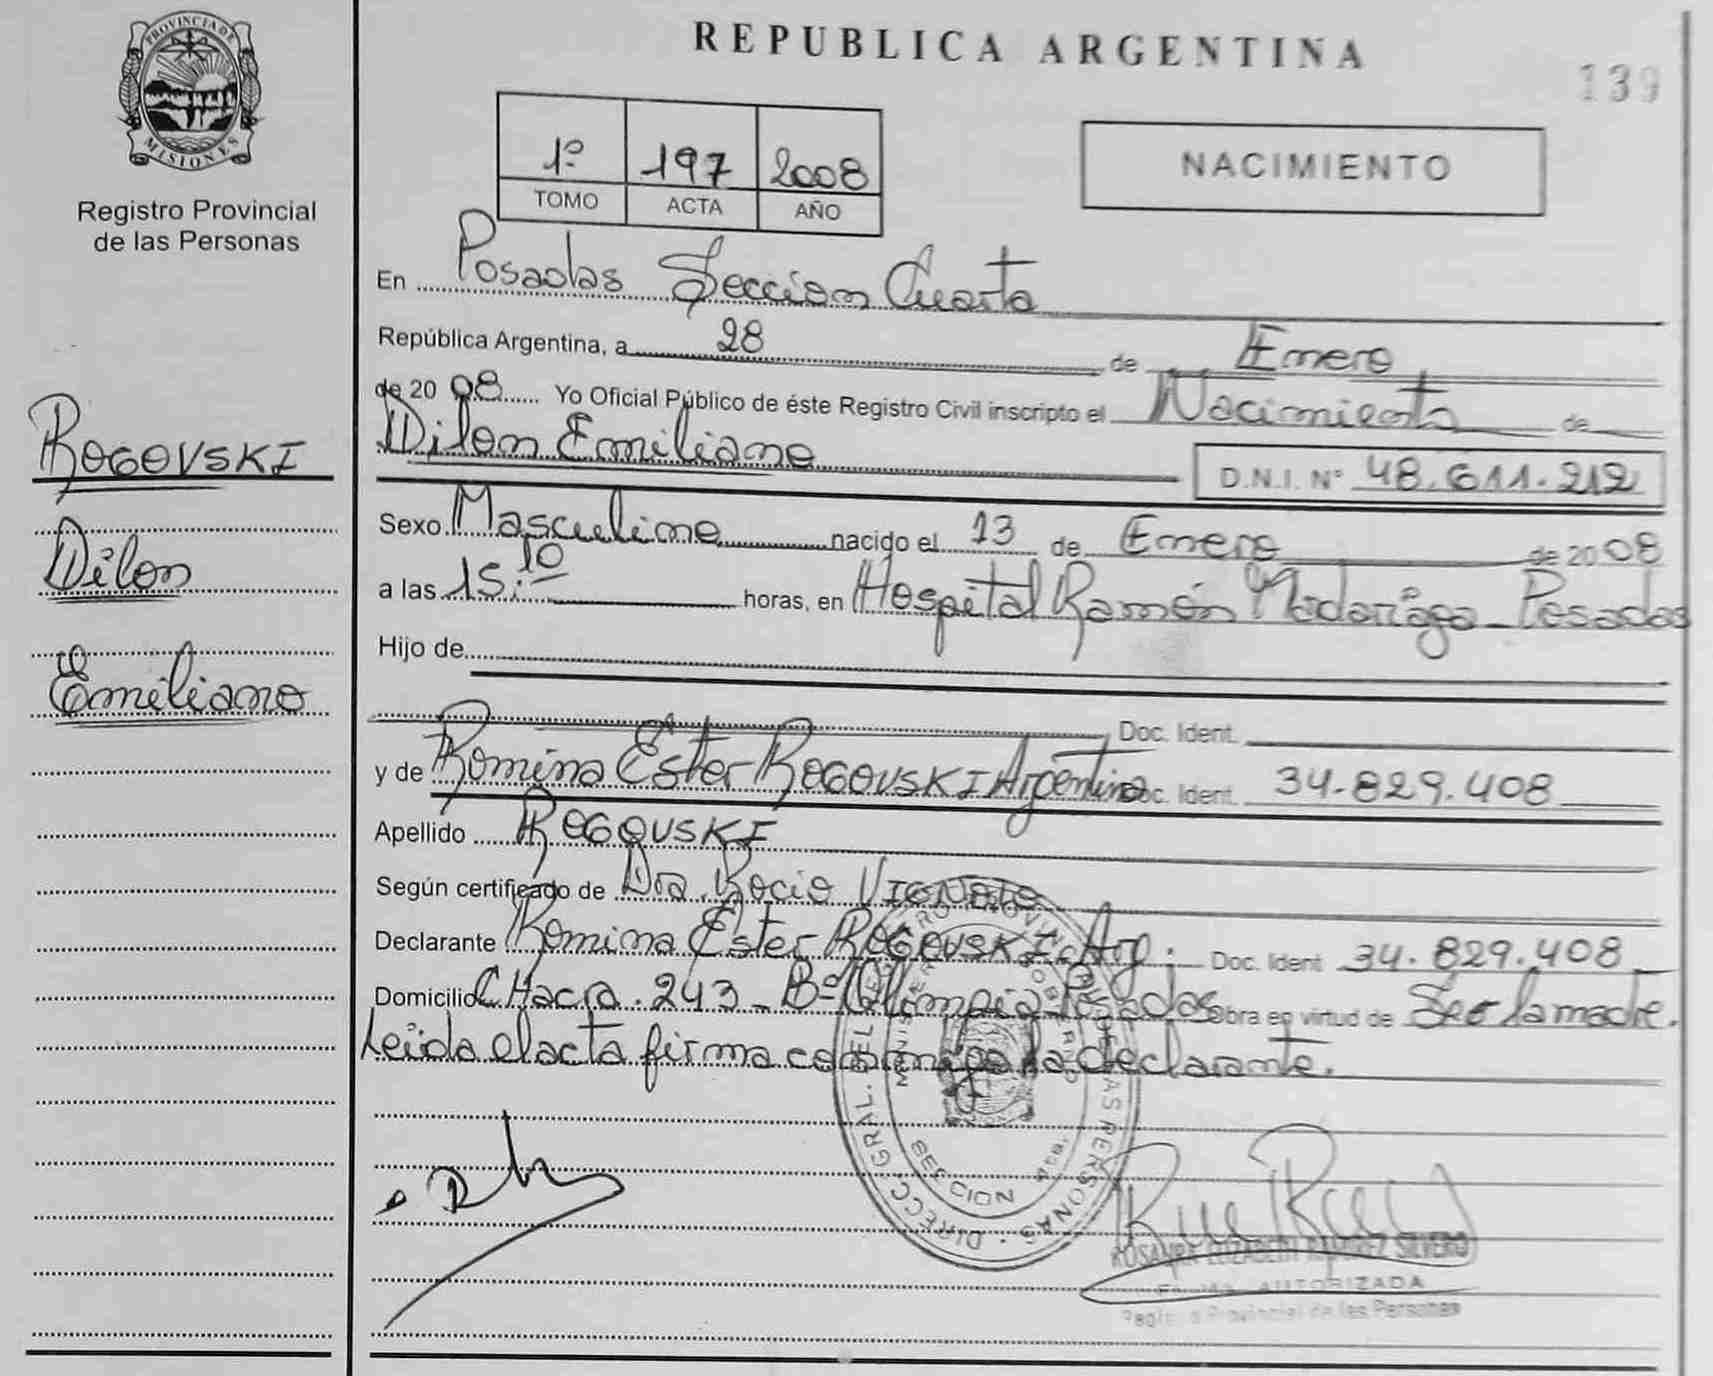 PROVINCIA DE
MISIONES
Registro Provincial
de las Personas
ROGOVSKI
Dilon
Emiliano
REPUBLICA ARGENTINA
139
1º 197 2008
TOMO ACTA AÑO
NACIMIENTO
En Posadas Seccion Cuarta
República Argentina, a 28 de Enero
de 2008 Yo Oficial Público de éste Registro Civil inscripto el Nacimiento de
Dilon Emiliano D.N.I. Nº 48.611.212
Sexo Masculino nacido el 13 de Enero de 2008
a las 15:10 horas, en Hospital Ramón Madariaga Posadas
Hijo de
Doc. Ident.
y de Romina Ester ROGOVSKI Argentina Doc. Ident. 34.829.408
Apellido ROGOVSKI
Según certificado de Dra. Rocio
Declarante Romina Ester ROGOVSKI Arg. Doc. Ident 34.829.408
Domicilio CHacra. 243 - Bº Olimpia Posadas Obra en virtud de Ser la madre.
Leida el acta firma conmigo la declarante.
DIRECC. GRAL. DEL REGISTRO PROVINCIAL DE LAS PERSONAS
ROSAURA ELIZABETH RAMIREZ SILVERO
FIRMA AUTORIZADA
Registro Provincial de las Personas